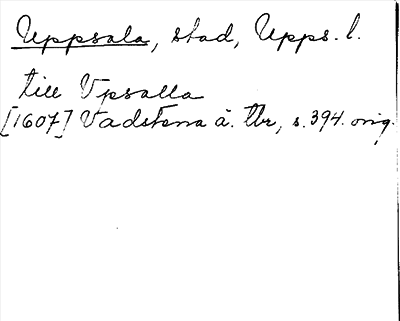 Uppsala, stad, Upps. l.
till Vpsalla
[1607] Vadstena ä. tbr, s. 394. orig.